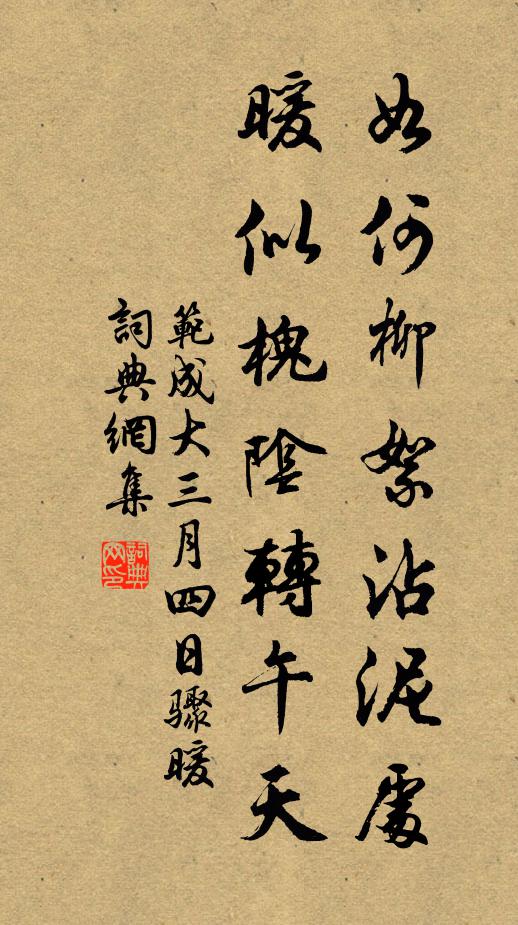 如何柳絮沾泥處
暖似槐陰轉午天
範成大三月四日驟暖
詞典網集
詞典網印